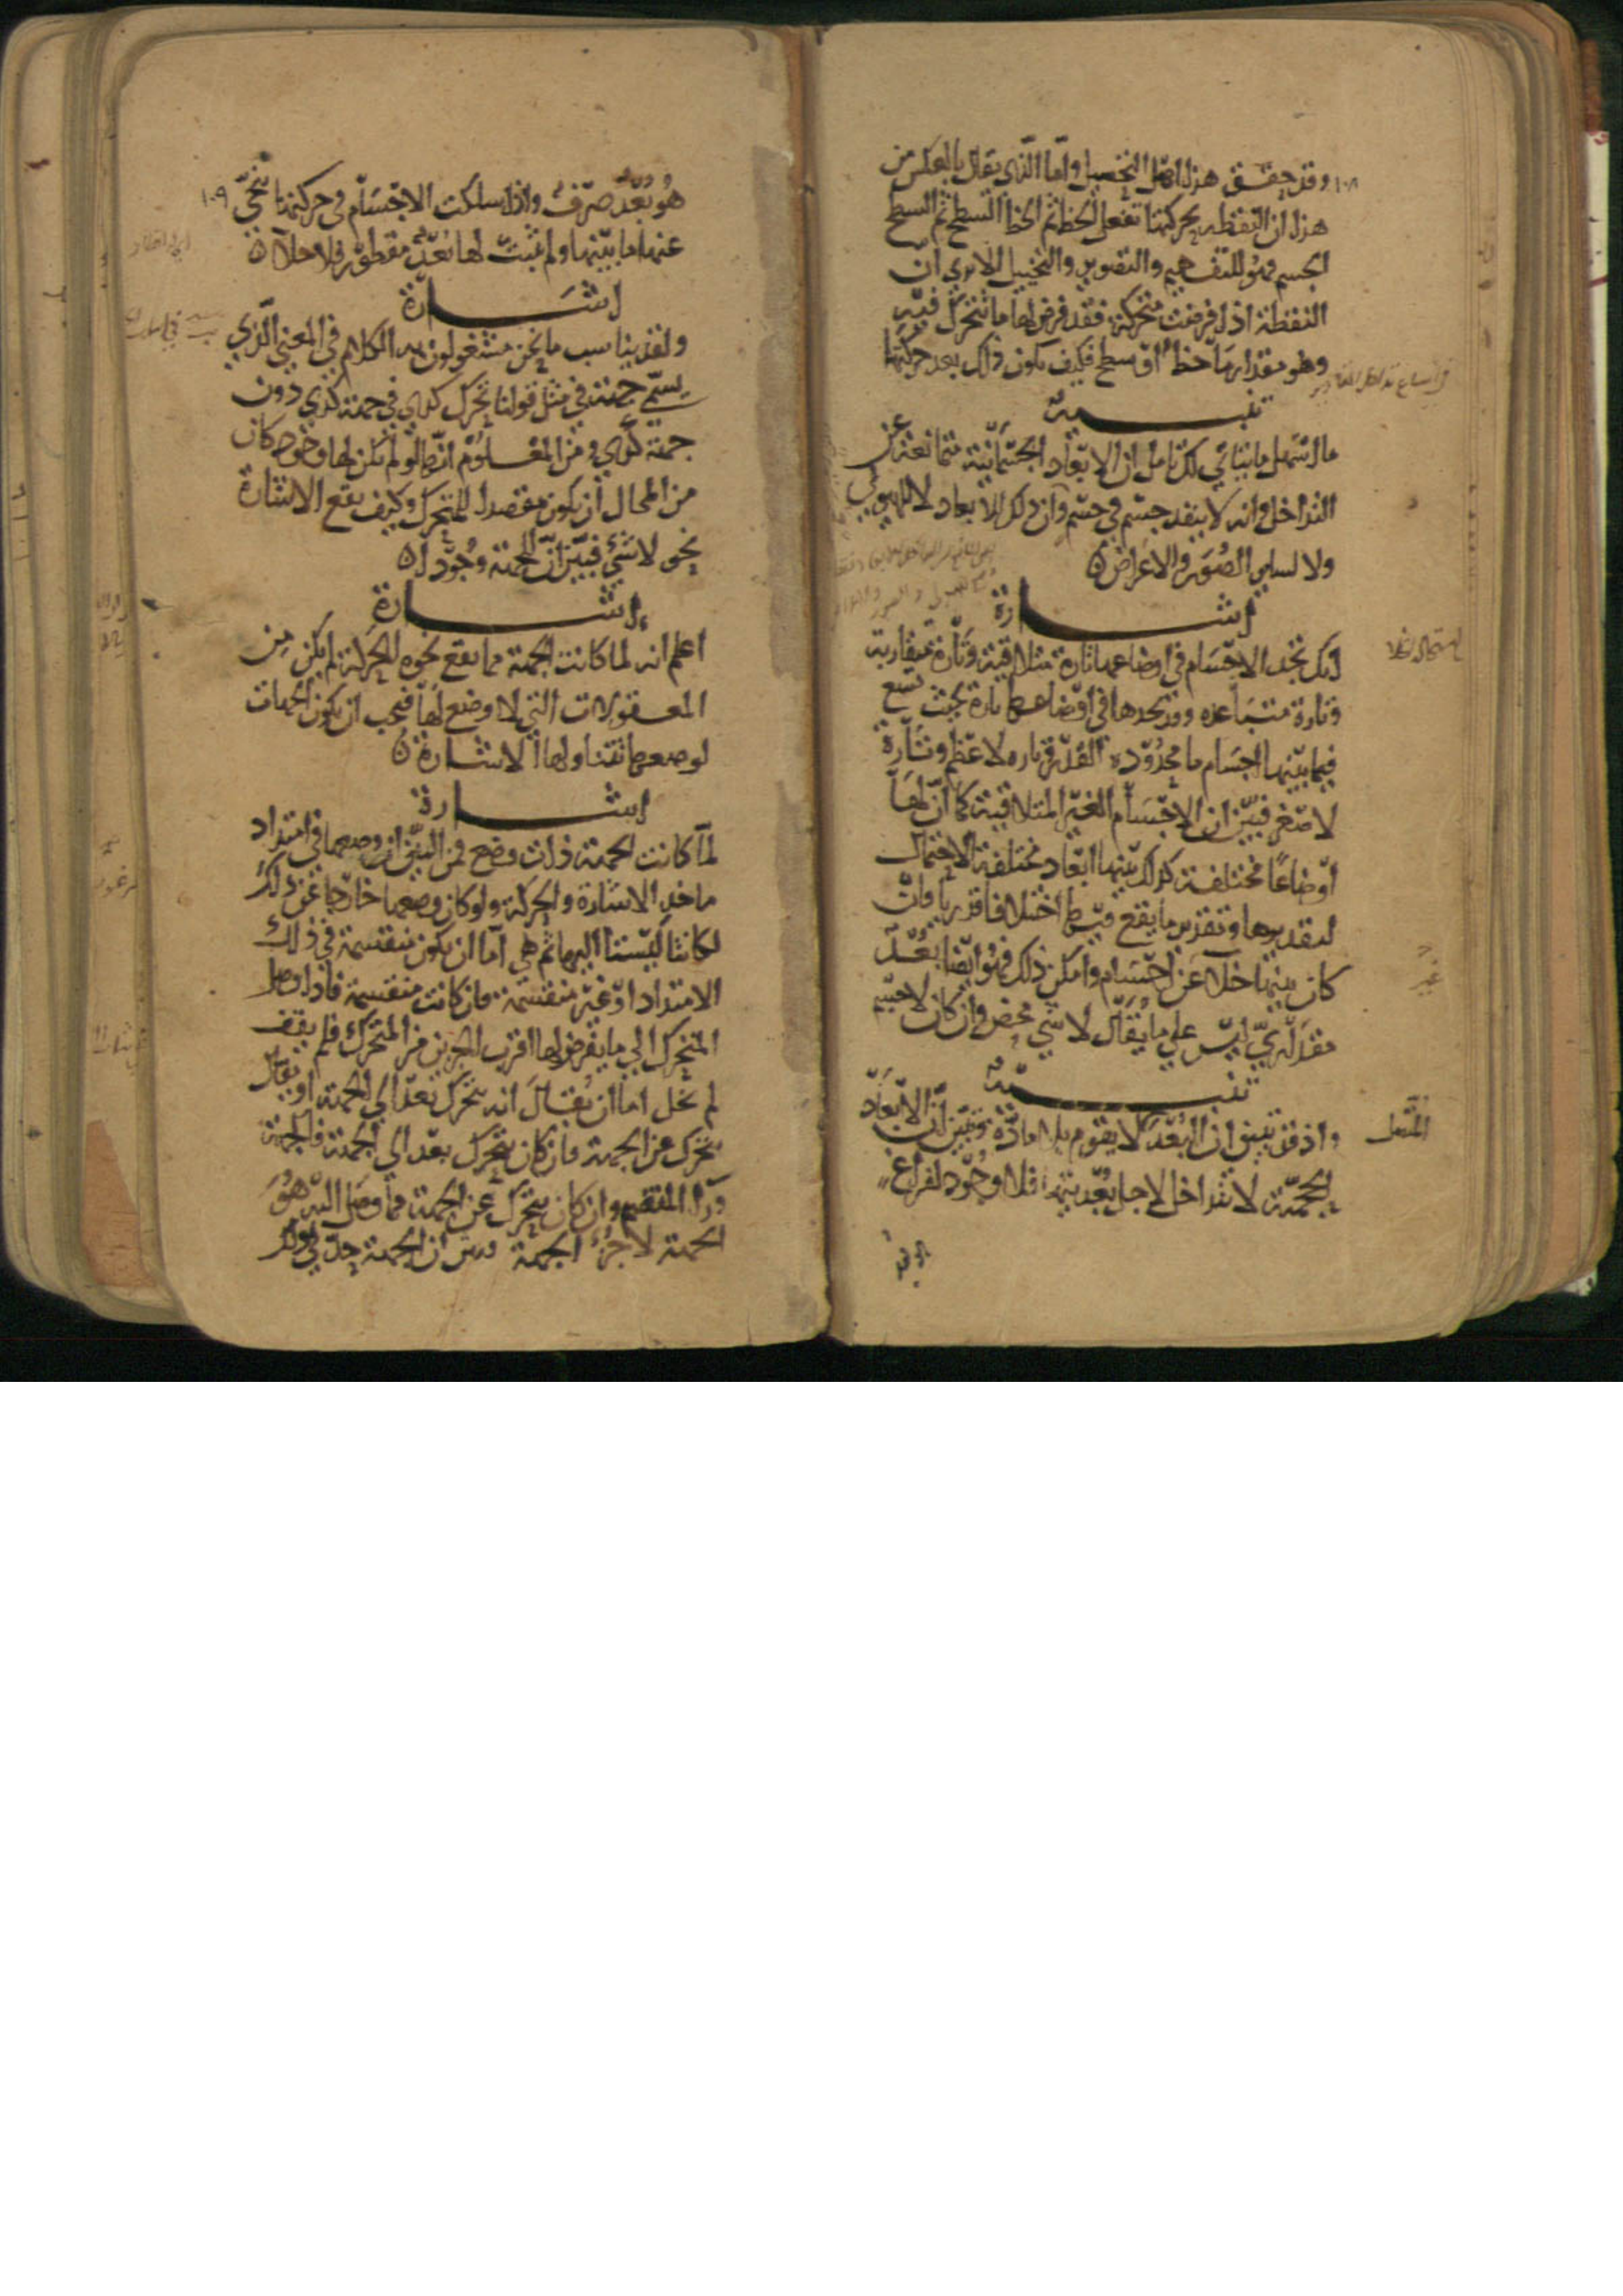 ١٠٨
وقد حقق هذا اهل التحصيل واما الذى يقال بالعكس من
هذا ان النقطه بحركتها تفعل الخط ثم الخط السطح ثم السطح
الجسم فهو للتفهيم والتصوير والتخييل الا ترى ان
النقطة اذا فرضت متحركة فقد فرض لها ما تتحرك فيه
وهو مقدار ما خط او سطح فكيف يكون ذلك بعد حركتها
تنبيه
ما اسهل ما يتاتي لك تامل ان الابعاد الجسمانية متمانعة عن
التداخل وانه لا ينفد جسم في جسم وان ذلك للابعاد لا للهيولي
ولا لساير الصور والاعراض
اشارة
انك تجد الاجسام في اوضاعها تارة متلاقية وتارة متقاربة
وتارة متباعده وقد تجدها في اوضاعها تارة بحيث تسع
فيما بينها اجسام ما محدوده القدر تاره لاعظم وتارة
لاصغر فبين ان الاجسام الغير المتلاقية كما ان لها
اوضاعا مختلفة كذلك بينها ابعاد مختلفة الاحتمال
لتقديرها وتقدير ما يقع فيها اختلافا قدريا وان
كان بينها خلا غير اجسام وامكن ذلك فهو ايضا بعد
مقداري ليس علي ما يقال لا شي محض وان كان لا جسم
تنبيه
واذ قد تبين ان البعد لا يقوم بلا مادة وتبين ان الابعاد
الحجمية لا تتداخل لاجل بعديتها فلا وجود لفراغ
المتصل
١٠٩
هو بعد صرف واذا سلكت الاجسام في حركتها تنحي
عنها ما بينها ولم يثبت لها بعد مفطور فلا خلا
اشارة
ولقد يناسب ما نحن مشغولون به الكلام في المعني الذي
يسمي جهة في مثل قولنا تحرك كذي في جهة كذي دون
جهة كذي ومن المعلوم انها لو لم يكن لها وجود كان
من المحال ان يكون مقصدا للمتحرك وكيف يقع الاشارة
نحو لا شي فبين ان للجهة وجودا
اشارة
اعلم انه لما كانت الجهة مما يقع نحوه الحركة لم يكن من
المعقولات التي لا وضع لها فيجب ان يكون الجهات
لوضعها تتناولها الاشارة
اشارة
لما كانت الجهة ذات وضع فمن البين ان وضعها في امتداد
ماخذ الاشارة والحركة ولو كان وضعها خارجا عن ذلك
لكانتا ليستا اليها ثم هي اما ان يكون منقسمة في ذلك
الامتداد او غير منقسمة فان كانت منقسمة فاذا وصل
المتحرك الي ما يفرض لها اقرب الجزين من المتحرك فلم يقف
لم يخل اما ان يقال انه يتحرك بعد الي الجهة او يقال
يتحرك عن الجهة فان كان يتحرك بعد الي الجهة فالجهة
ورا المنقسم وان كان يتحرك عن الجهة فما وصل اليه هو
الجهة لا جزء الجهة وبين ان الجهة حد في ذلك